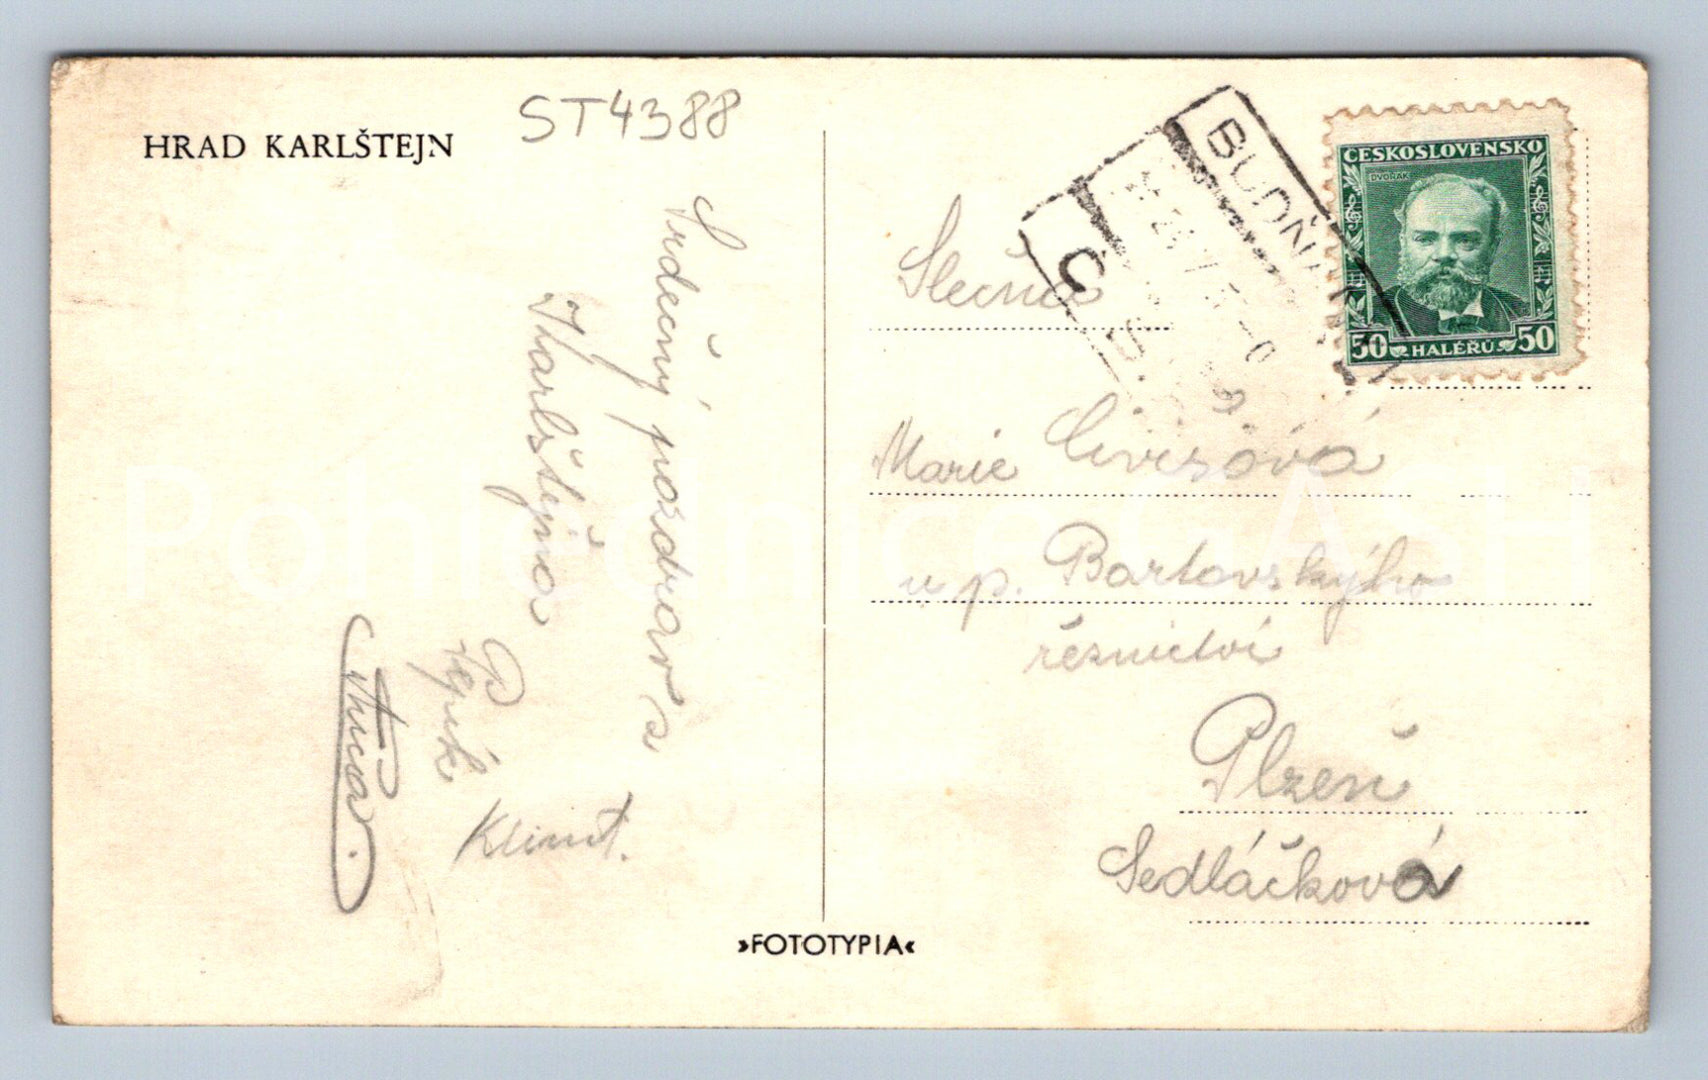 HRAD KARLŠTEJN
ST4388
Srdečný pozdrav z
Karlštejna
Pepík
Klimt.
Slečna
Marie Civišová
u p. Bartovského
řeznictví
Plzeň
Sedláčková
ČESKOSLOVENSKO
DVOŘÁK
50 HALÉŘŮ 50
BUDŇANY
»FOTOTYPIA«
Pohlednice GASH